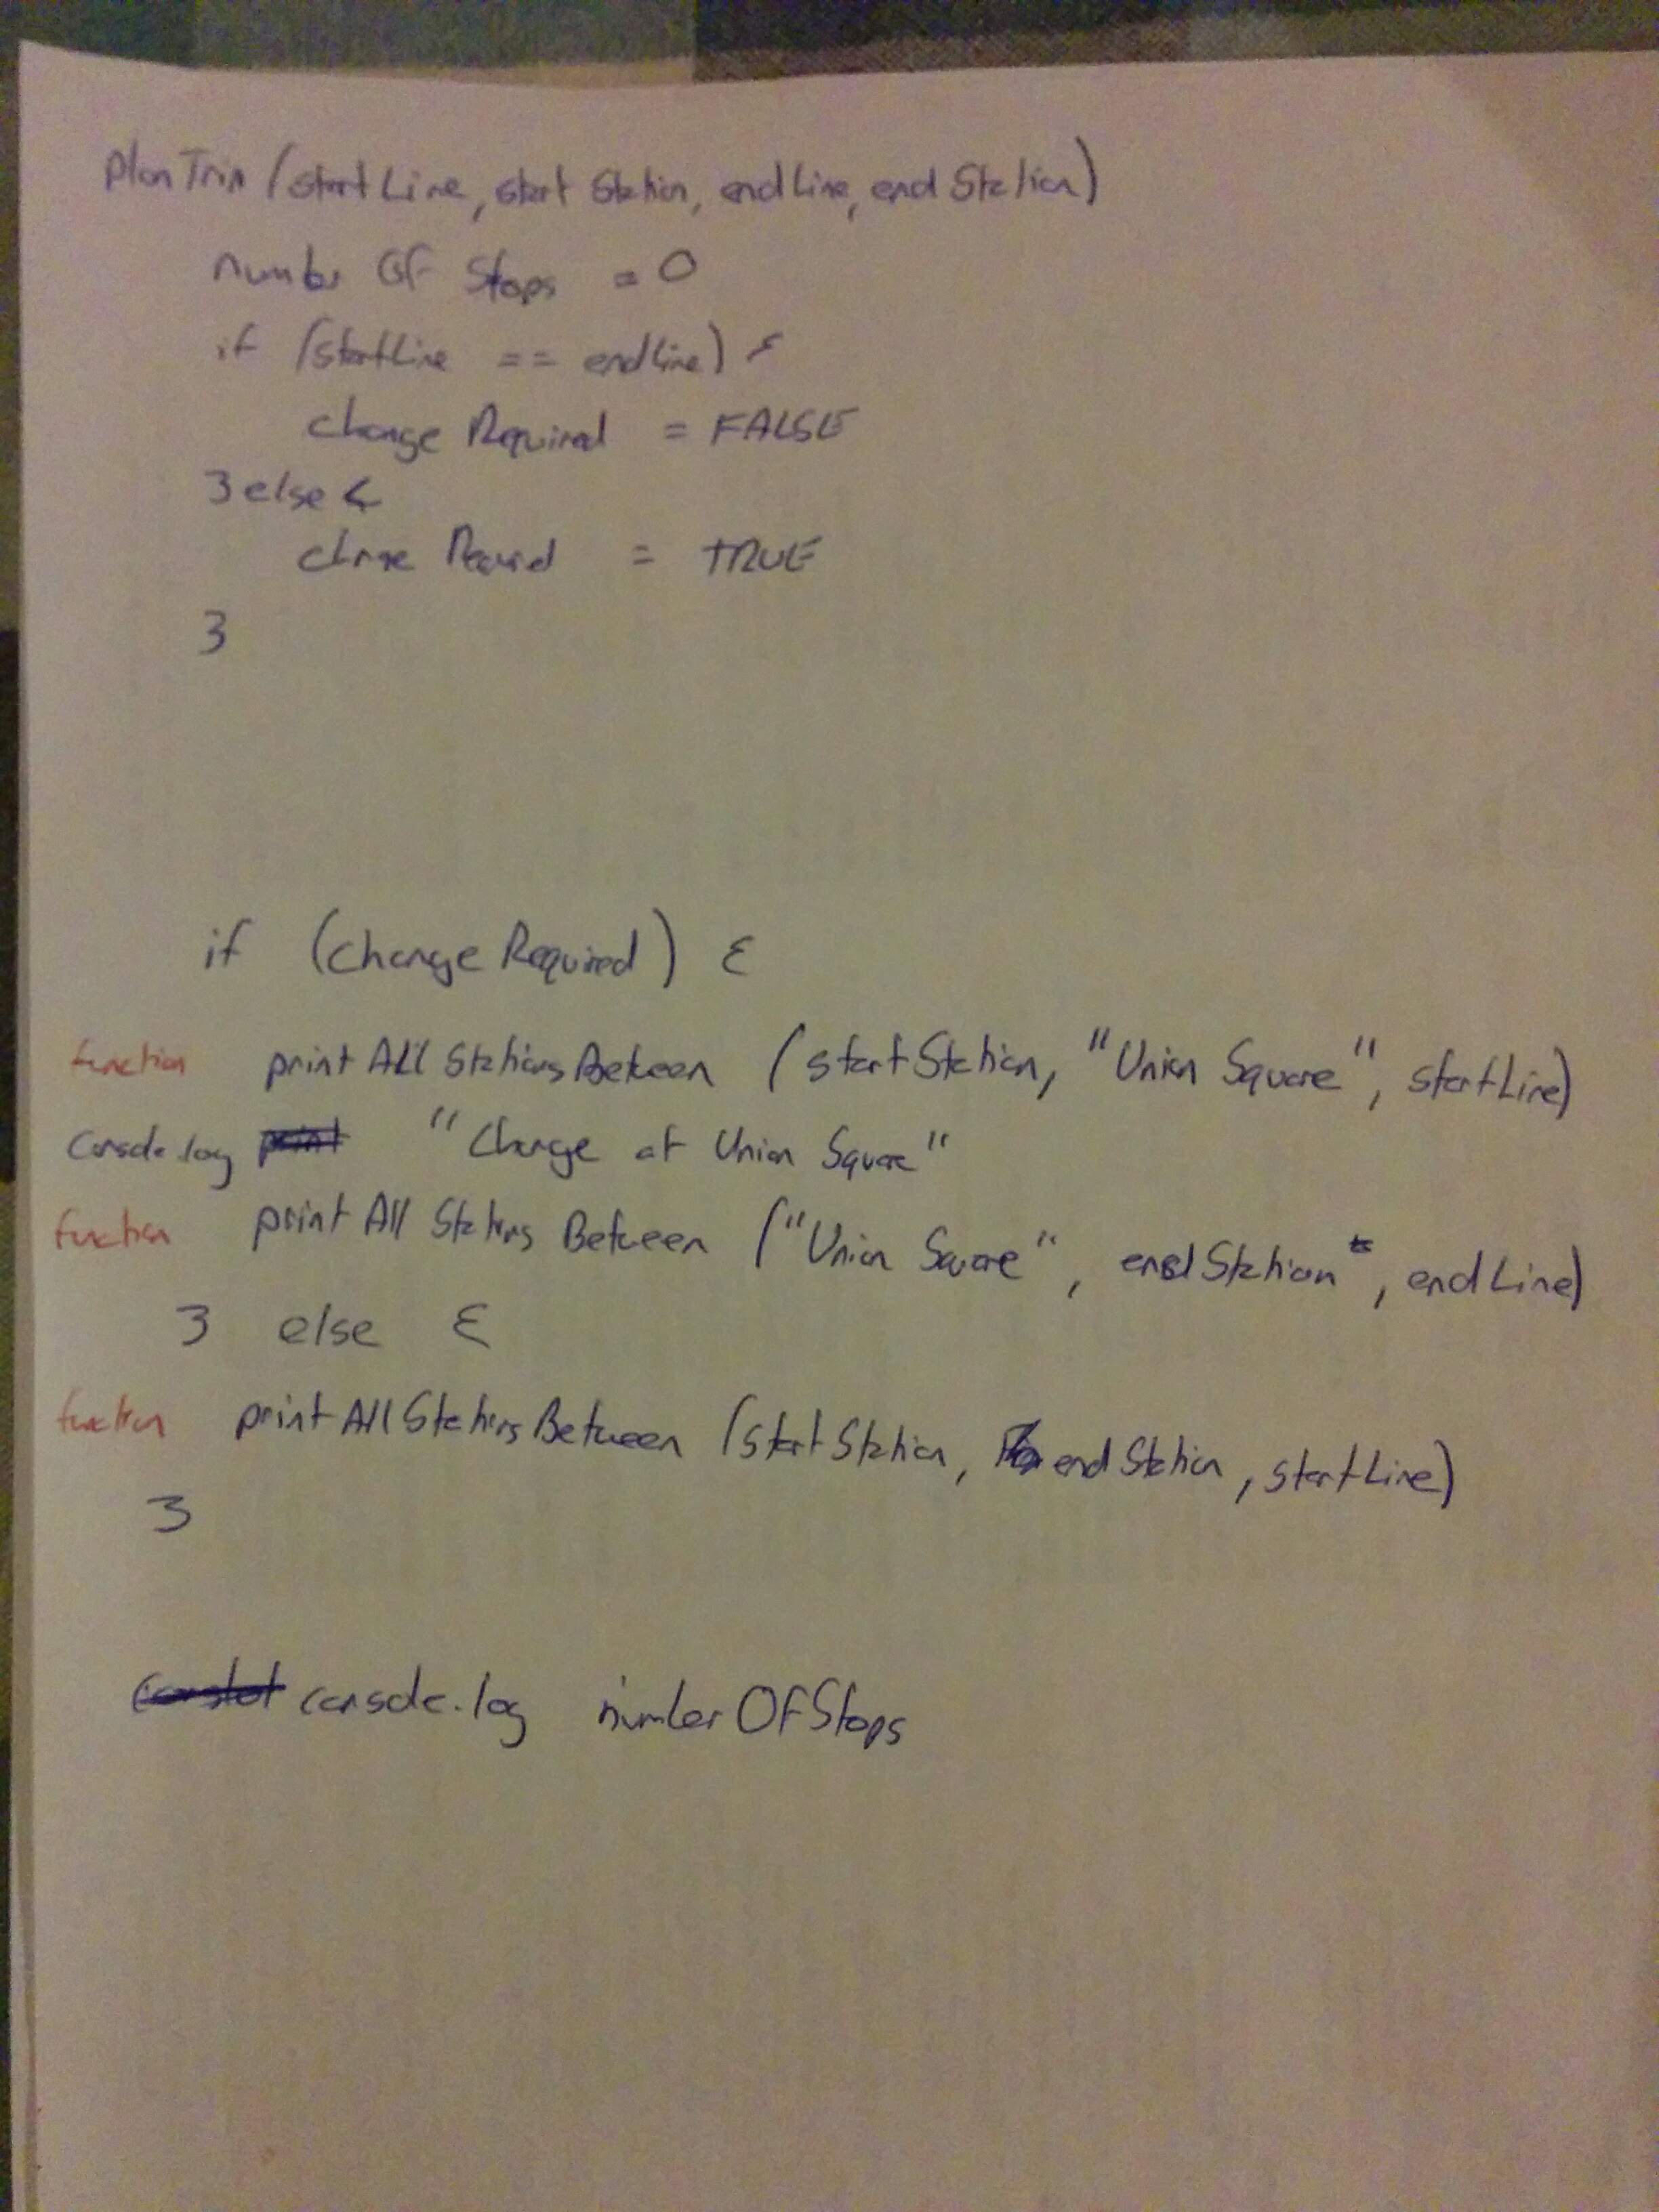 planTrip (startLine, start Station, endLine, end Station)
number Of Stops = 0
if (startLine == endLine) {
change Required = FALSE
} else {
change Required = TRUE
}
if (change Required) {
function print All Stations Between (startStation, "Union Square", startLine)
console.log print "Change at Union Square"
function print All Stations Between ("Union Square", endStation, endLine)
} else {
function print All Stations Between (start Station, end Station, startLine)
}
console.log numberOfStops